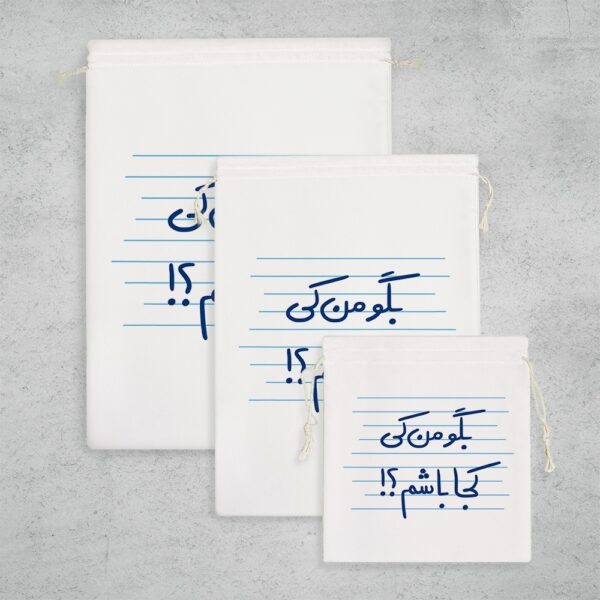 کی
م ؟!
بگو من کی
م ؟!
بگو من کی
کجا باشم ؟!